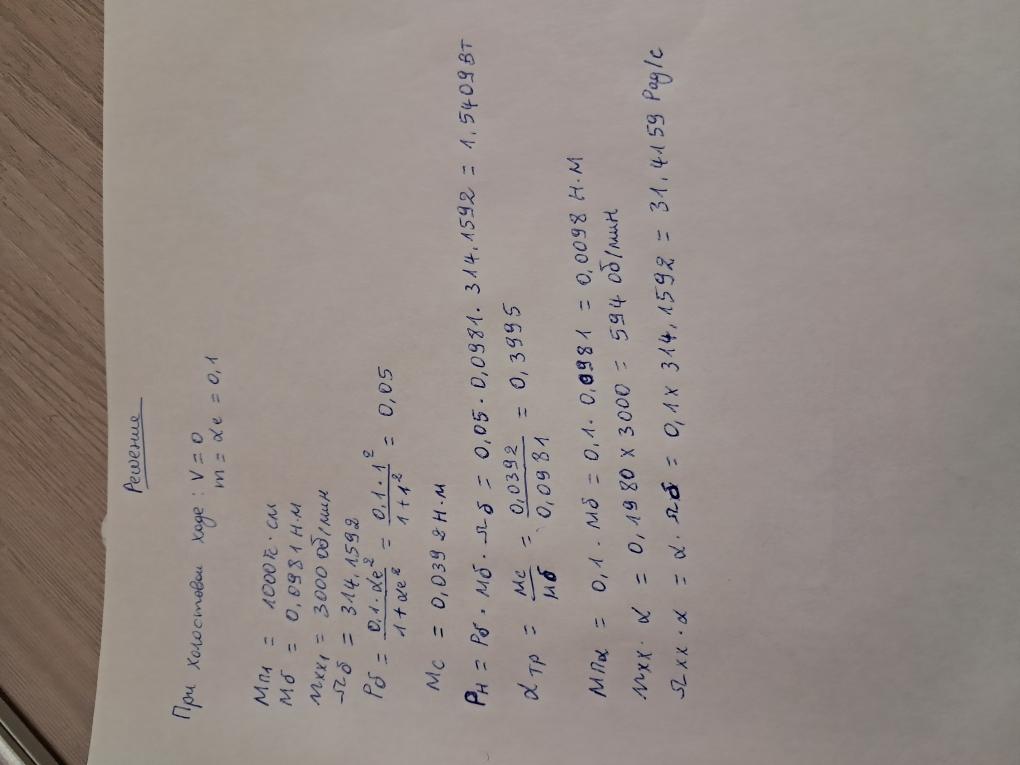 Решение
При холостовом ходе: V = 0
m = αe = 0,1
Mп1 = 1000 гс·см
Mб = 0,0981 Н·М
nхх1 = 3000 об/мин
Ωб = 314,1592
Pб = 0,1·αe² / 1+αe² = 0,1·1² / 1+1² = 0,05
Mc = 0,0392 Н·М
Pн = Pб · Mб · Ωб = 0,05 · 0,0981 · 314,1592 = 1,5409 Вт
αтр = Mc / Mб = 0,0392 / 0,0981 = 0,3995
Mпα = 0,1 · Mб = 0,1 · 0,0981 = 0,0098 Н·М
nхх · α = 0,1980 × 3000 = 594 об/мин
Ωхх · α = α · Ωб = 0,1 × 314,1592 = 31,4159 Рад/с